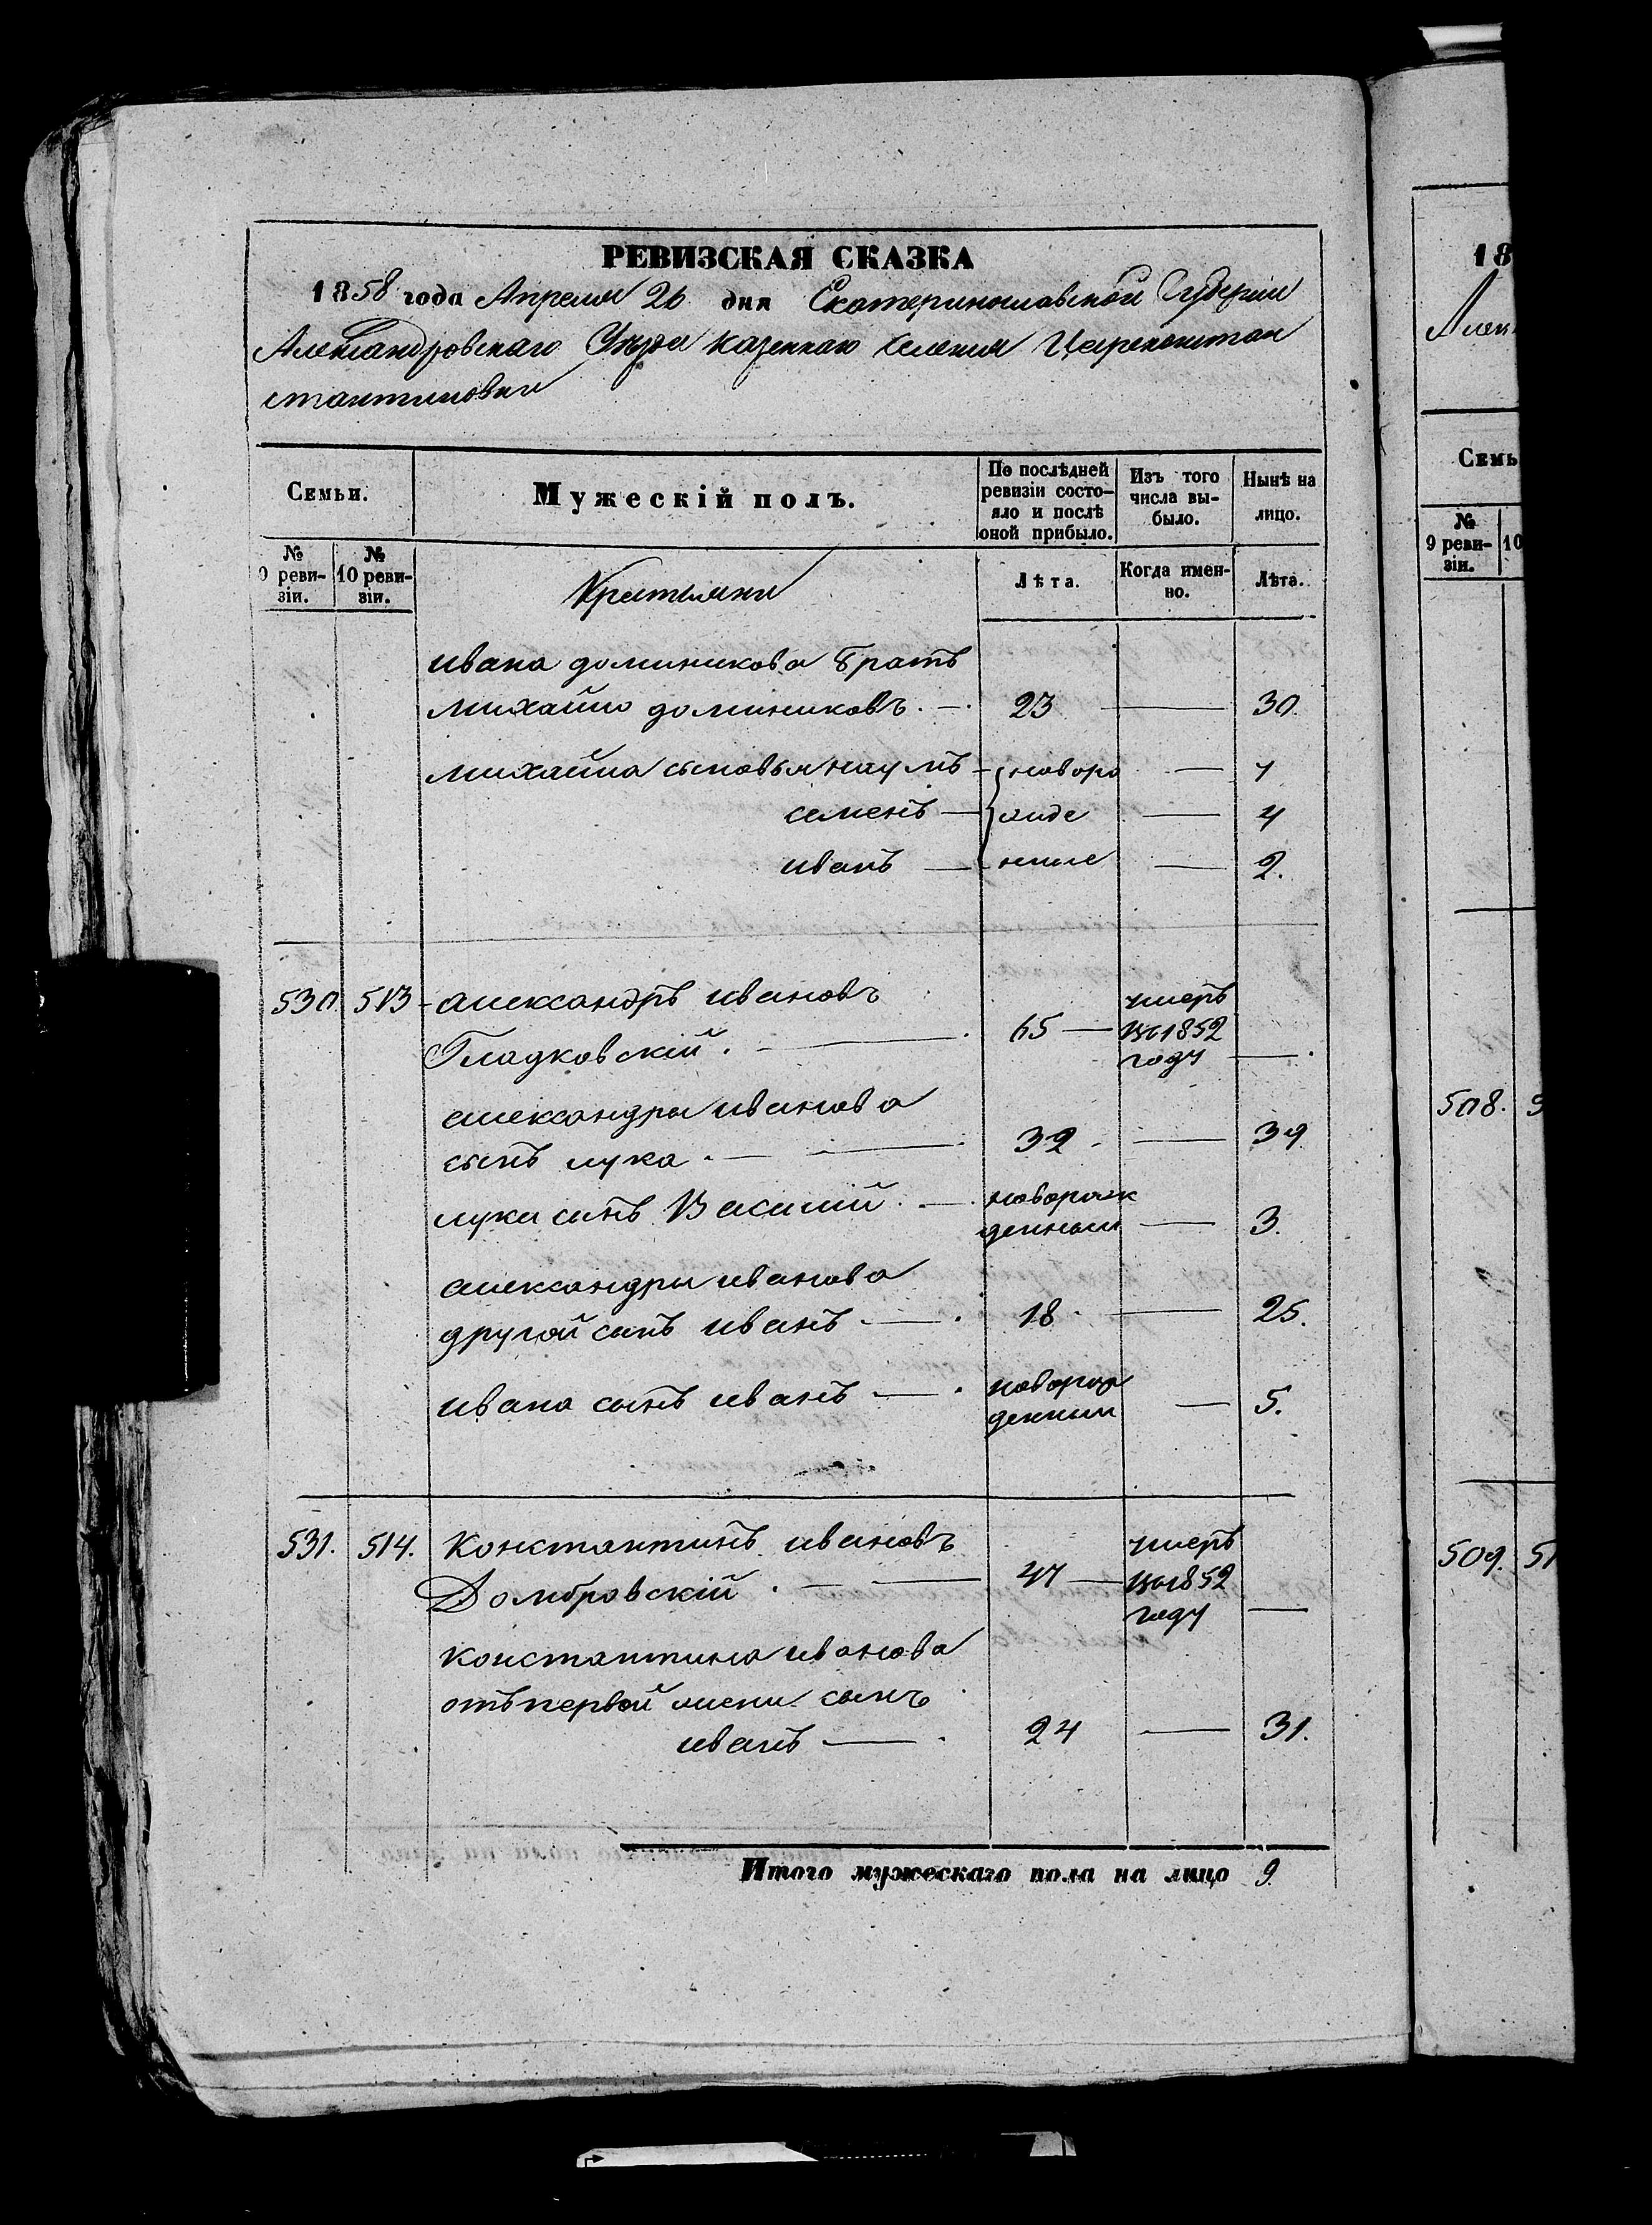 РЕВИЗСКАЯ СКАЗКА
1858 года Апреля 26 дня Екатеринославской Губернии
Александровскаго Уезда казеннаго селения Цареконстан
стантиновки
Семьи.
Мужескій полъ.
По послѣдней ревизіи состо-
яло и послѣ
оной прибыло.
Изъ того
числа вы-
было.
Нынѣ на
лицо.
№
9 реви-
зіи.
№
10 реви-
зіи.
Крестьяне
Лѣта.
Когда имен-
но.
Лѣта.
ивана доминикова братъ
михайло доминиковъ. — 23 — 30.
михайла сыновья наумъ — новоро — 7
семенъ — жде — 4
иванъ — нные — 2.
530. 513 александръ ивановъ
Гладковскій. — 65 — умеръ
въ 1852
году —
александра иванова
сынъ лука. — 32 — 39
луки сынъ Василій. — новорож
денный — 3.
александра иванова
другой сынъ иванъ — 18 — 25.
ивана сынъ иванъ — новорож
денный — 5.
531. 514. Константинъ ивановъ
Домбровскій. — 47 — умеръ
въ 1852
году —
константина иванова
отъ первой жены сынъ
иванъ — 24 — 31.
Итого мужескаго пола на лицо 9.
18
Семь
№
9 реви-
зіи.
10
508.
509. 51